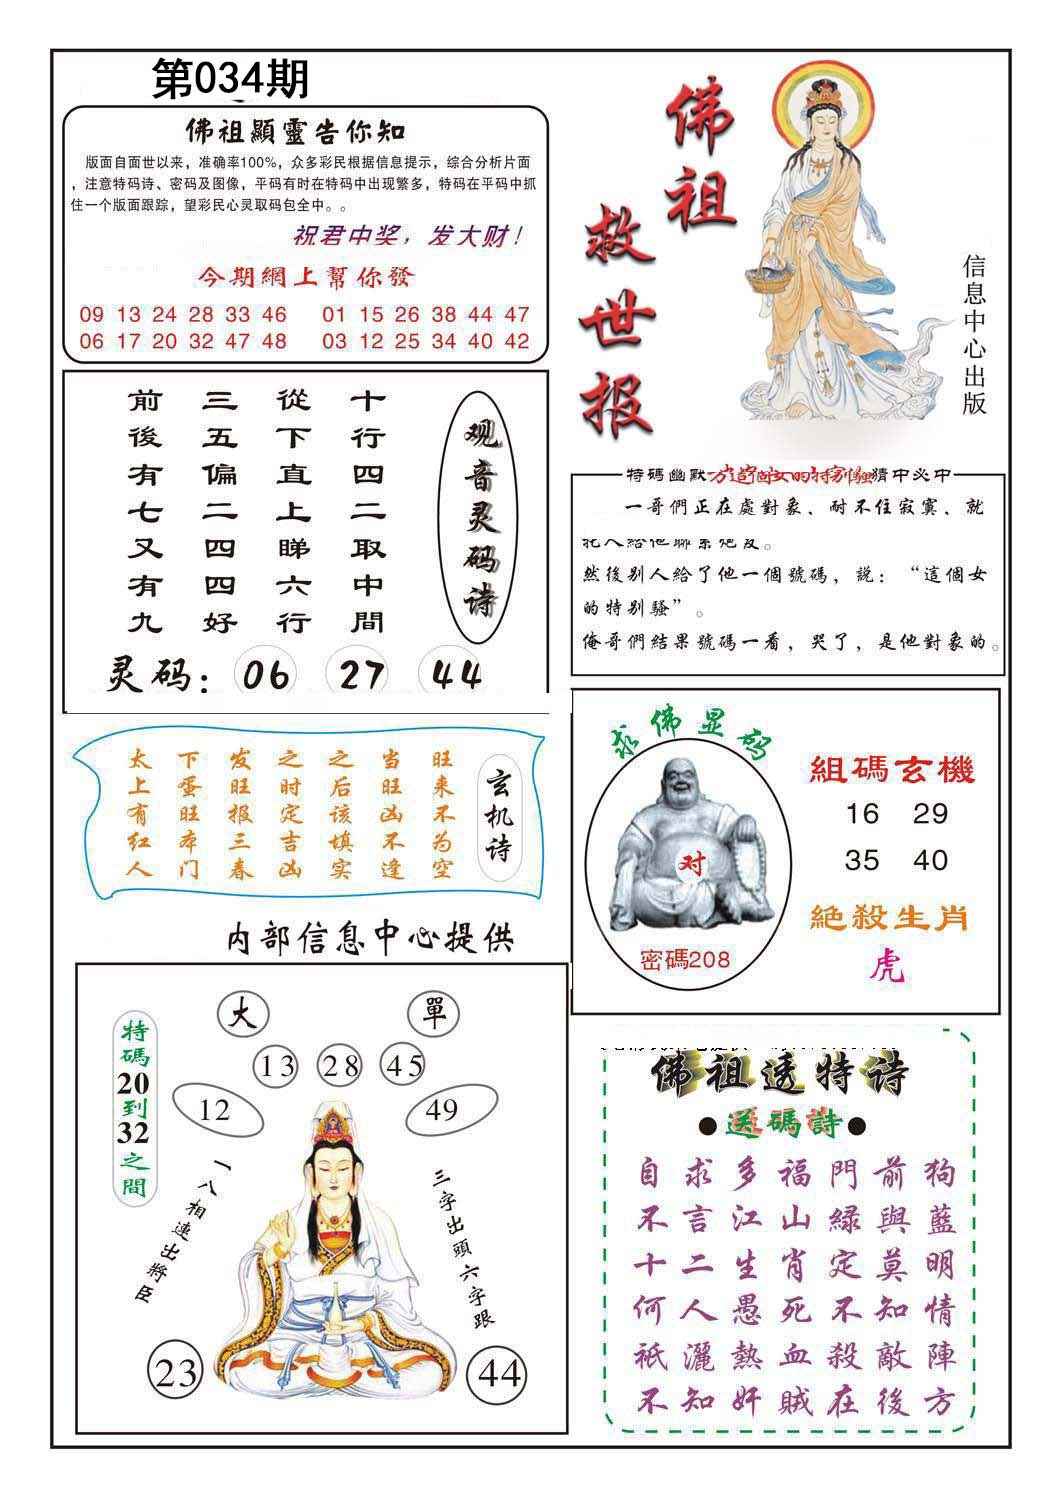 第034期
佛祖顯靈告你知
版面自面世以来，准确率100%，众多彩民根据信息提示，综合分析片面
，注意特码诗、密码及图像，平码有时在特码中出现繁多，特码在平码中抓
住一个版面跟踪，望彩民心灵取码包全中。。
祝君中奖，发大财！
今期網上幫你發
09 13 24 28 33 46 01 15 26 38 44 47
06 17 20 32 47 48 03 12 25 34 40 42
佛祖
救世报
信息中心出版
观音灵码诗
十行四二取中間
從下直上睇六行
三五偏二四四好
前後有七又有九
灵码：06 27 44
特碼幽默 猜中必中
一哥們正在處對象、耐不住寂寞、就
然後别人給了他一個號碼，説：“這個女
的特别騷”。
俺哥們結果號碼一看，哭了，是他對象的。
玄机诗
旺来不为空
当旺凶不逢
之后该填实
之时定吉凶
发旺报三春
下蛋旺本门
太上有红人
求佛显码
对
密碼208
組碼玄機
16 29
35 40
絶殺生肖
虎
内部信息中心提供
大 單
13 28 45
12 49
特碼20到32之間
一八相連出將臣
三字出頭六字跟
23 44
佛祖透特诗
●送碼詩●
自求多福門前狗
不言江山緑與藍
十二生肖定莫明
何人愚死不知情
衹灑熱血殺敵陣
不知奸賊在後方